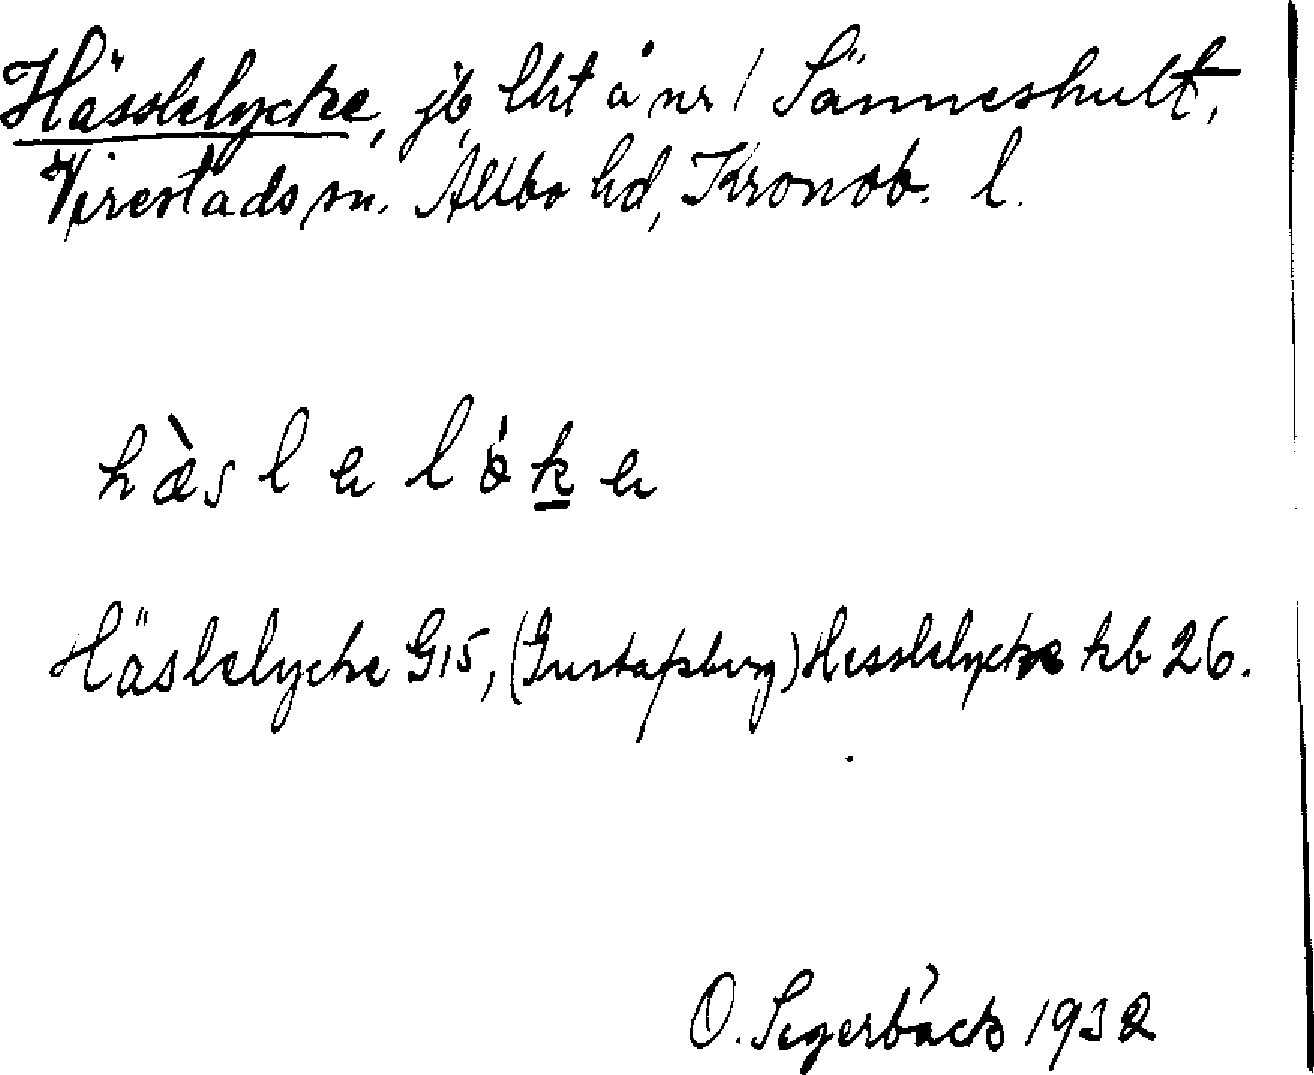 Hässlelycke, jb, lht å nr 1 Sänneshult,
Virestads sn. Allbo hd, Kronob. l.
hà̀sleløke
Häslelycke G15, (Gustafsberg) Hesslelycke kb 26.
O. Segerbäck 1932